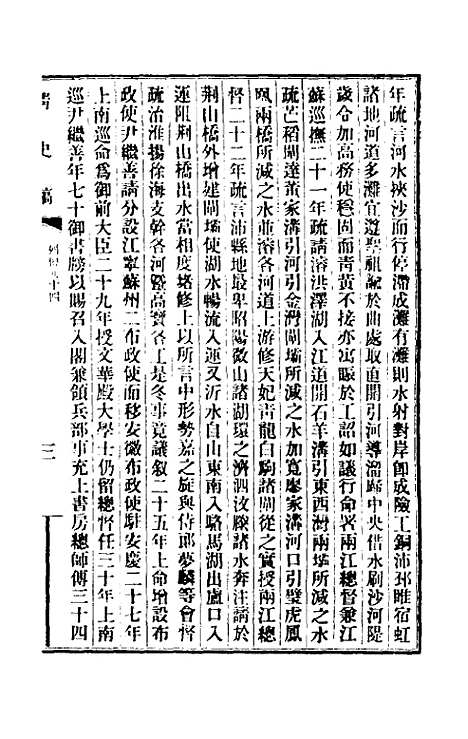 年疏言河水挾沙而行停溜成灘有灘則水射對岸卽成險工銅沛邳睢宿虹
諸地河道多灘宜遵聖祖諭於曲處取直開引河導溜歸中央借水刷沙河隄
歲令加高務使穩固而靑黃不接亦寓賑於工詔如議行命署兩江總督兼江
蘇巡撫二十一年疏請濬洪澤湖入江道開石羊溝引東西灣兩壩所減之水
疏芒稻閘達董家溝引河引金灣閘壩所減之水加寬廖家溝河口引璧虎鳳
凰兩橋所減之水並濬各河道上游修天妃靑龍白駒諸閘從之實授兩江總
督二十二年疏言沛縣地最卑昭陽微山諸湖環之濟泗汶滕諸水奔注請於
荆山橋外增建閘壩使湖水暢流入運又沂水自山東南入駱馬湖出盧口入
運阻荆山橋出水當相度堵修上以所言中形勢嘉之旋與侍郎夢麟等會督
疏治淮揚徐海支幹各河暨高寶各工是冬事竟議叙二十五年上命增設布
政使尹繼善請分設江寧蘇州二布政使而移安徽布政使駐安慶二十七年
上南巡命爲御前大臣二十九年授文華殿大學士仍留總督任三十年上南
巡尹繼善年七十御書牓以賜召入閣兼領兵部事充上書房總師傅三十四
清史稿 列傳九十四 三